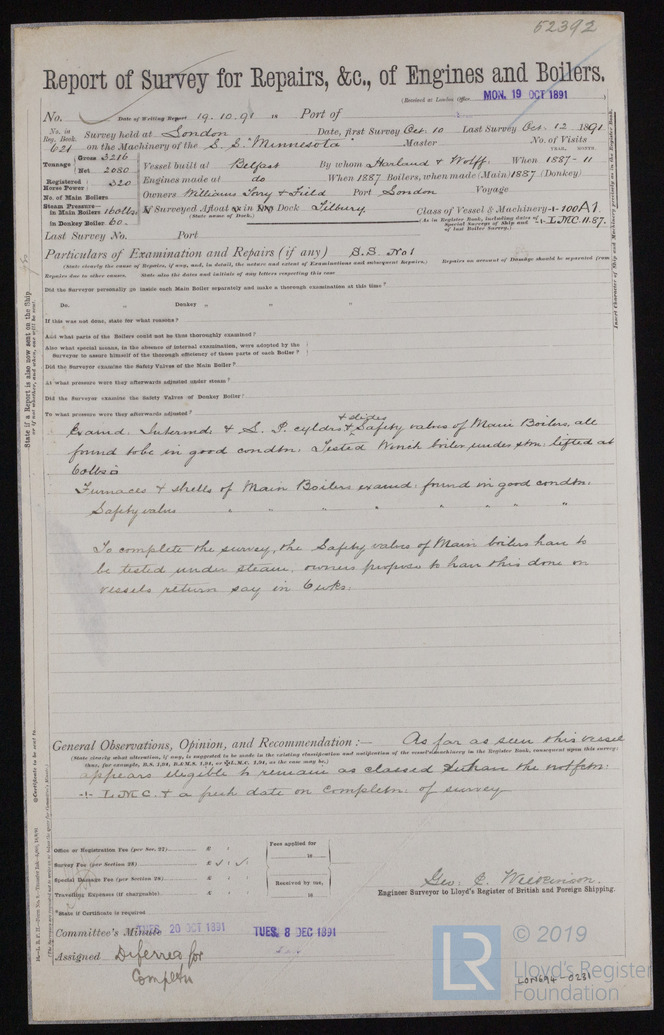 52392
Report of Survey for Repairs, &c., of Engines and Boilers.
(Received at London Office MON. 19 OCT 1891)
No. Date of Writing Report 19.10.91 Port of
No. in Reg. Book. Survey held at London Date, first Survey Oct. 10 Last Survey Oct. 12 1891
621 on the Machinery of the S.S. "Minnesota" Master No. of Visits
Tonnage Gross 3216 Net 2080 Vessel built at Belfast By whom Harland & Wolff. When 1887-11
Registered Horse Power 320 Engines made at do When 1887 Boilers, when made (Main) 1887 (Donkey)
No. of Main Boilers Owners Williams Torry & Field Port London Voyage
Steam Pressure in Main Boilers 160 lbs If Surveyed Afloat or in Dry Dock Tilbury Class of Vessel & Machinery 100A1
in Donkey Boiler 60. (State name of Dock.) (As in Register Book, including dates of Special Surveys of Ship and of last Boiler Survey.) L.M.C. 11.87.
Last Survey No. Port
Particulars of Examination and Repairs (if any) S.S. No 1
(State clearly the cause of Repairs, if any, and, in detail, the nature and extent of Examinations and subsequent Repairs.) Repairs on account of Damage should be separated from
Repairs due to other causes. State also the dates and initials of any letters respecting this case
Did the Surveyor personally go inside each Main Boiler separately and make a thorough examination at this time?
Do. " Donkey " " "
If this was not done, state for what reasons?
And what parts of the Boilers could not be thus thoroughly examined?
Also what special means, in the absence of internal examination, were adopted by the
Surveyor to assure himself of the thorough efficiency of those parts of each Boiler?
Did the Surveyor examine the Safety Valves of the Main Boiler?
At what pressure were they afterwards adjusted under steam?
Did the Surveyor examine the Safety Valves of Donkey Boiler?
To what pressure were they afterwards adjusted?
& slides
Examd. Intermd. & L. P. cyldrs & Safety valves of Main Boilers, all
found to be in good condtn: Tested Winch boiler under stm: lifted at
60 lbs
Furnaces & shells of Main Boilers examd: found in good condtn:
Safety valves " " " " " " "
To complete the survey, the Safety valves of Main boilers have to
be tested under steam, owners propose to have this done on
vessels return say in 6 wks.
General Observations, Opinion, and Recommendation:— As far as seen this vessel
(State clearly what alteration, if any, is suggested to be made in the existing classification and notification of the vessel's machinery in the Register Book, consequent upon this survey;
thus, for example, B.S. 1,91, B.&M.S. 1,91, or L.M.C. 1,91, as the case may be.)
appears eligible to remain as classed & to have the notfctn:
L.M.C. & a fresh date on completn: of survey
Office or Registration Fee (per Sec. 27) £ Fees applied for
Survey Fee (per Section 28) £ 18
Special Damage Fee (per Section 28) £ Received by me,
Travelling Expenses (if chargeable) £ 18
*State if Certificate is required
Geo. C. Wilkinson.
Engineer Surveyor to Lloyd's Register of British and Foreign Shipping.
Committee's Minute TUES. 20 OCT 1891 TUES. 8 DEC 1891
Assigned Deferred for
Completn
LR © 2019
Lloyd's Register
Foundation
LON694-0231